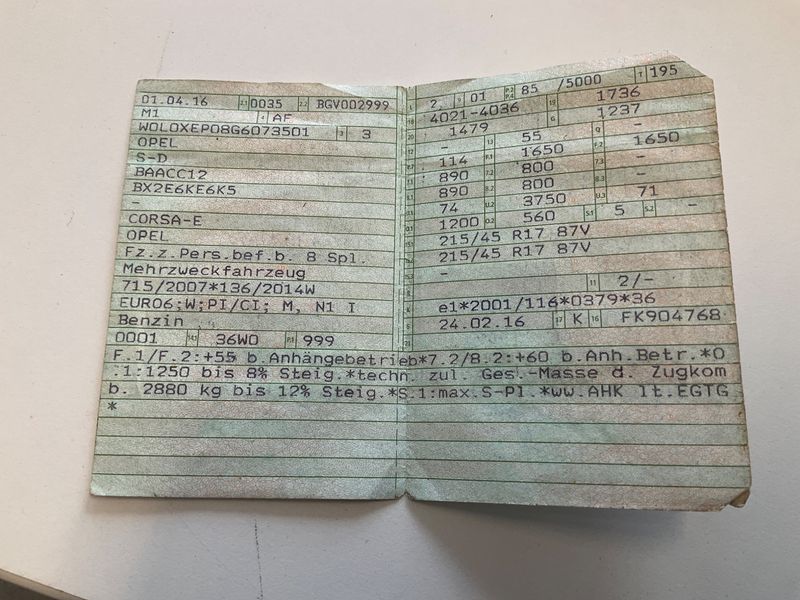 01.04.16 2.1 0035 2.2 BGV002999
M1 4 AF
W0L0XEP08G6073501 3 3
OPEL
S-D
BAACC12
BX2E6KE6K5
–
CORSA-E
OPEL
Fz.z.Pers.bef.b. 8 Spl.
Mehrzweckfahrzeug
715/2007*136/2014W
EURO6;W;PI/CI; M, N1 I
Benzin
0001 14.1 36W0 P.1 999
L 2, 9 01 P.2 P.4 85 /5000 T 195
18 4021-4036 19 1736
20 1479 G 1237
12 – 13 55 Q –
V.7 114 F.1 1650 F.2 1650
7.1 890 7.2 800 7.3 –
8.1 890 8.2 800 8.3 –
U.1 74 U.2 3750 U.3 71
O.1 1200 O.2 560 S.1 5 S.2 –
15.1 215/45 R17 87V
15.2 215/45 R17 87V
15.3 –
R 11 2/–
K e1*2001/116*0379*36
6 24.02.16 17 K 16 FK904768
21
F.1/F.2:+55 b.Anhängebetrieb*7.2/8.2:+60 b.Anh.Betr.*O
.1:1250 bis 8% Steig.*techn. zul. Ges.-Masse d. Zugkom
b. 2880 kg bis 12% Steig.*S.1:max.S-Pl.*ww.AHK lt.EGTG
*